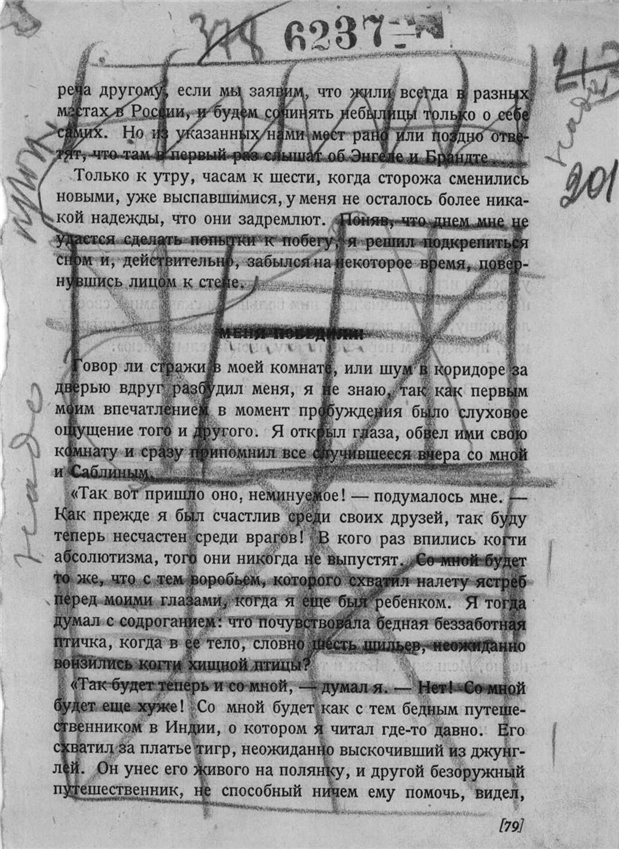 378 6237
реча другому, если мы заявим, что жили всегда в разных
местах в России, и будем сочинять небылицы только о себе
самих. Но из указанных нами мест рано или поздно отве-
тят, что там в первый раз слышат об Энгеле и Брандте.
Только к утру, часам к шести, когда сторожа сменились
201
новыми, уже выспавшимися, у меня не осталось более ника-
кой надежды, что они задремлют. Поняв, что днем мне не
удастся сделать попытки к побегу, я решил подкрепиться
сном и, действительно, забылся на некоторое время, повер-
нувшись лицом к стене.
МЕНЯ ПОБЕДИЛИ
Говор ли стражи в моей комнате, или шум в коридоре за
дверью вдруг разбудил меня, я не знаю, так как первым
моим впечатлением в момент пробуждения было слуховое
ощущение того и другого. Я открыл глаза, обвел ими свою
комнату и сразу припомнил все случившееся вчера со мной
и Саблиным.
надо
«Так вот пришло оно, неминуемое! — подумалось мне. —
Как прежде я был счастлив среди своих друзей, так буду
теперь несчастен среди врагов! В кого раз впились когти
абсолютизма, того они никогда не выпустят. Со мной будет
то же, что с тем воробьем, которого схватил налету ястреб
перед моими глазами, когда я еще был ребенком. Я тогда
думал с содроганием: что почувствовала бедная беззаботная
птичка, когда в ее тело, словно шесть шильев, неожиданно
вонзились когти хищной птицы?
«Так будет теперь и со мной, — думал я. — Нет! Со мной
будет еще хуже! Со мной будет как с тем бедным путеше-
ственником в Индии, о котором я читал где-то давно. Его
схватил за платье тигр, неожиданно выскочивший из джунг-
лей. Он унес его живого на полянку, и другой безоружный
путешественник, не способный ничем ему помочь, видел,
[79]